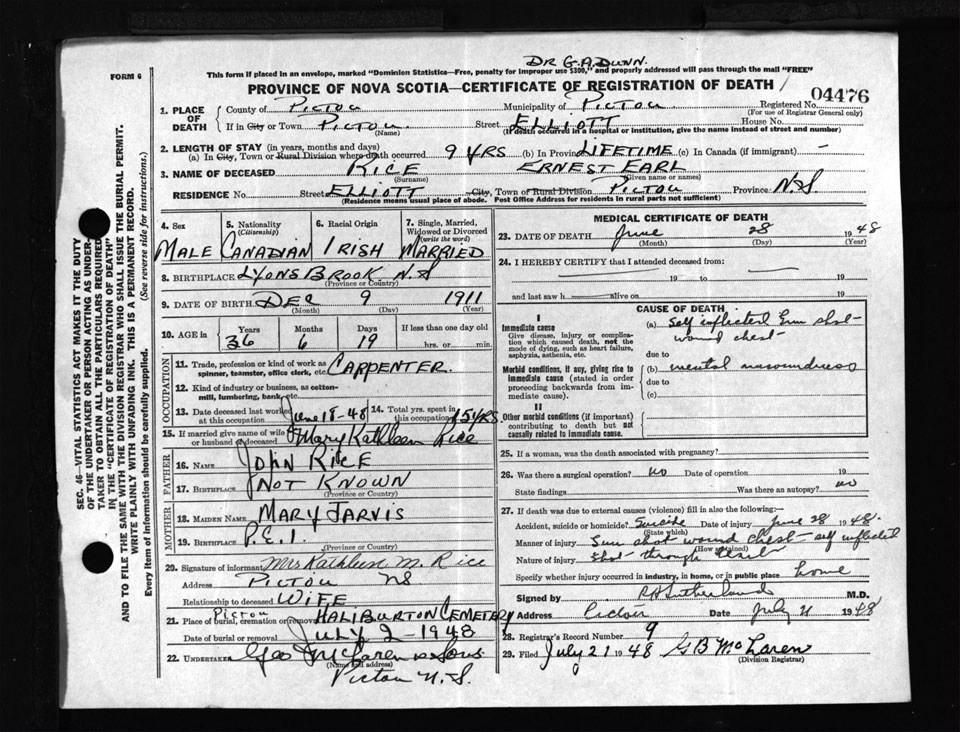 DR G.A. DUNN.
FORM 6
This form if placed in an envelope, marked "Dominion Statistics—Free, penalty for improper use $300," and properly addressed will pass through the mail "FREE"
PROVINCE OF NOVA SCOTIA—CERTIFICATE OF REGISTRATION OF DEATH
04476
1. PLACE OF DEATH
County of PICTOU Municipality of PICTOU Registered No.
(For use of Registrar General only)
If in City or Town PICTOU. Street ELLIOTT House No.
(Name) (If death occurred in a hospital or institution, give the name instead of street and number)
2. LENGTH OF STAY (in years, months and days)
(a) In City, Town or Rural Division where death occurred 9 YRS (b) In Province LIFETIME (c) In Canada (if immigrant) —
3. NAME OF DECEASED RICE ERNEST EARL
(Surname) (Given name or names)
RESIDENCE No. Street ELLIOTT City, Town or Rural Division PICTOU Province N.S.
(Residence means usual place of abode. Post Office Address for residents in rural parts not sufficient)
SEC. 46—VITAL STATISTICS ACT MAKES IT THE DUTY
OF THE UNDERTAKER OR PERSON ACTING AS UNDER-
TAKER TO OBTAIN ALL THE PARTICULARS REQUIRED
IN THE "CERTIFICATE OF REGISTRATION OF DEATH"
AND TO FILE THE SAME WITH THE DIVISION REGISTRAR WHO SHALL ISSUE THE BURIAL PERMIT.
WRITE PLAINLY WITH UNFADING INK. THIS IS A PERMANENT RECORD.
Every item of Information should be carefully supplied. (See reverse side for instructions.)
4. Sex 5. Nationality (Citizenship) 6. Racial Origin 7. Single, Married, Widowed or Divorced (write the word)
MALE CANADIAN IRISH MARRIED
8. BIRTHPLACE LYONS BROOK N.S
(Province or Country)
9. DATE OF BIRTH DEC 9 1911
(Month) (Day) (Year)
10. AGE IN Years Months Days If less than one day old
36 6 19 hrs. or min.
OCCUPATION
11. Trade, profession or kind of work as spinner, teamster, office clerk, etc. CARPENTER.
12. Kind of industry or business, as cotton-mill, lumbering, bank, etc.
13. Date deceased last worked at this occupation June 18-48 14. Total yrs. spent in this occupation 15 YRS.
15. If married give name of wife or husband of deceased Mary Kathleen Rice
FATHER
16. NAME JOHN RICE
17. BIRTHPLACE NOT KNOWN
(Province or Country)
MOTHER
18. MAIDEN NAME MARY JARVIS
19. BIRTHPLACE P.E.I.
(Province or Country)
20. Signature of informant Mrs Kathleen M. Rice
Address PICTOU NS
Relationship to deceased WIFE
21. Place of burial, cremation or removal Pictou HALIBURTON CEMETERY
Date of burial or removal JULY 2 - 1948
22. UNDERTAKER Geo McLaren & Sons
(Name and address)
Pictou N.S.
MEDICAL CERTIFICATE OF DEATH
23. DATE OF DEATH June 28 1948
(Month) (Day) (Year)
24. I HEREBY CERTIFY that I attended deceased from:
19 to 19
and last saw h alive on 19
CAUSE OF DEATH
I
Immediate cause
Give disease, injury or complication which caused death, not the mode of dying, such as heart failure, asphyxia, asthenia, etc.
(a) Self inflicted Gun shot wound chest
due to
Morbid conditions, if any, giving rise to immediate cause (stated in order proceeding backwards from immediate cause).
(b) mental unsoundness
due to
(c)
II
Other morbid conditions (if important) contributing to death but not causally related to immediate cause.
25. If a woman, was the death associated with pregnancy?
26. Was there a surgical operation? no Date of operation 19
State findings Was there an autopsy? no
27. If death was due to external causes (violence) fill in also the following:—
Accident, suicide or homicide? Suicide Date of injury June 28 1948.
(State which)
Manner of injury Gun shot wound chest — self inflicted
(How sustained)
Nature of injury Shot through
Specify whether injury occurred in industry, in home, or in public place home
Signed by Sutherland M.D.
Address Pictou Date July 2 1948
28. Registrar's Record Number 9
29. Filed July 21 1948 G B McLaren
(Division Registrar)